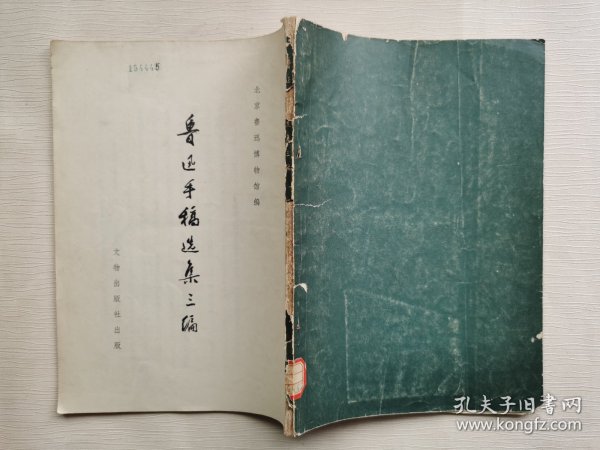 154445
北京鲁迅博物馆编
鲁迅手稿选集三编
文物出版社出版
孔夫子旧书网
www.kongfz.com